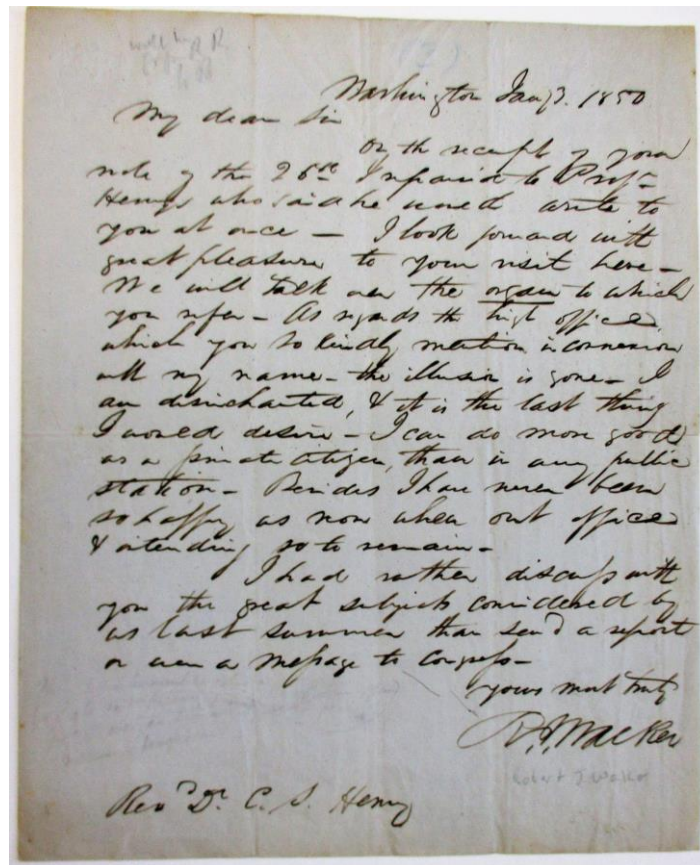 Washington Jany 3. 1850
My dear Sir
On the receipt of your
note of the 26th I repaired to Profr
Henry who said he would write to
you at once — I look forward with
great pleasure to your visit here —
We will talk over the organ to which
you refer — As regards the high office
which you so kindly mention in connexion
with my name — the illusion is gone — I
am disenchanted, & it is the last thing
I would desire — I can do more good
as a private citizen, than in any public
station — Besides I have never been
so happy as now when out office
& intending so to remain —
I had rather discuss with
you the great subjects considered by
us last summer than send a report
or even a message to Congress —
yours most truly
R. J. Walker
Robert J Walker
Revd Dr. C. S. Henry